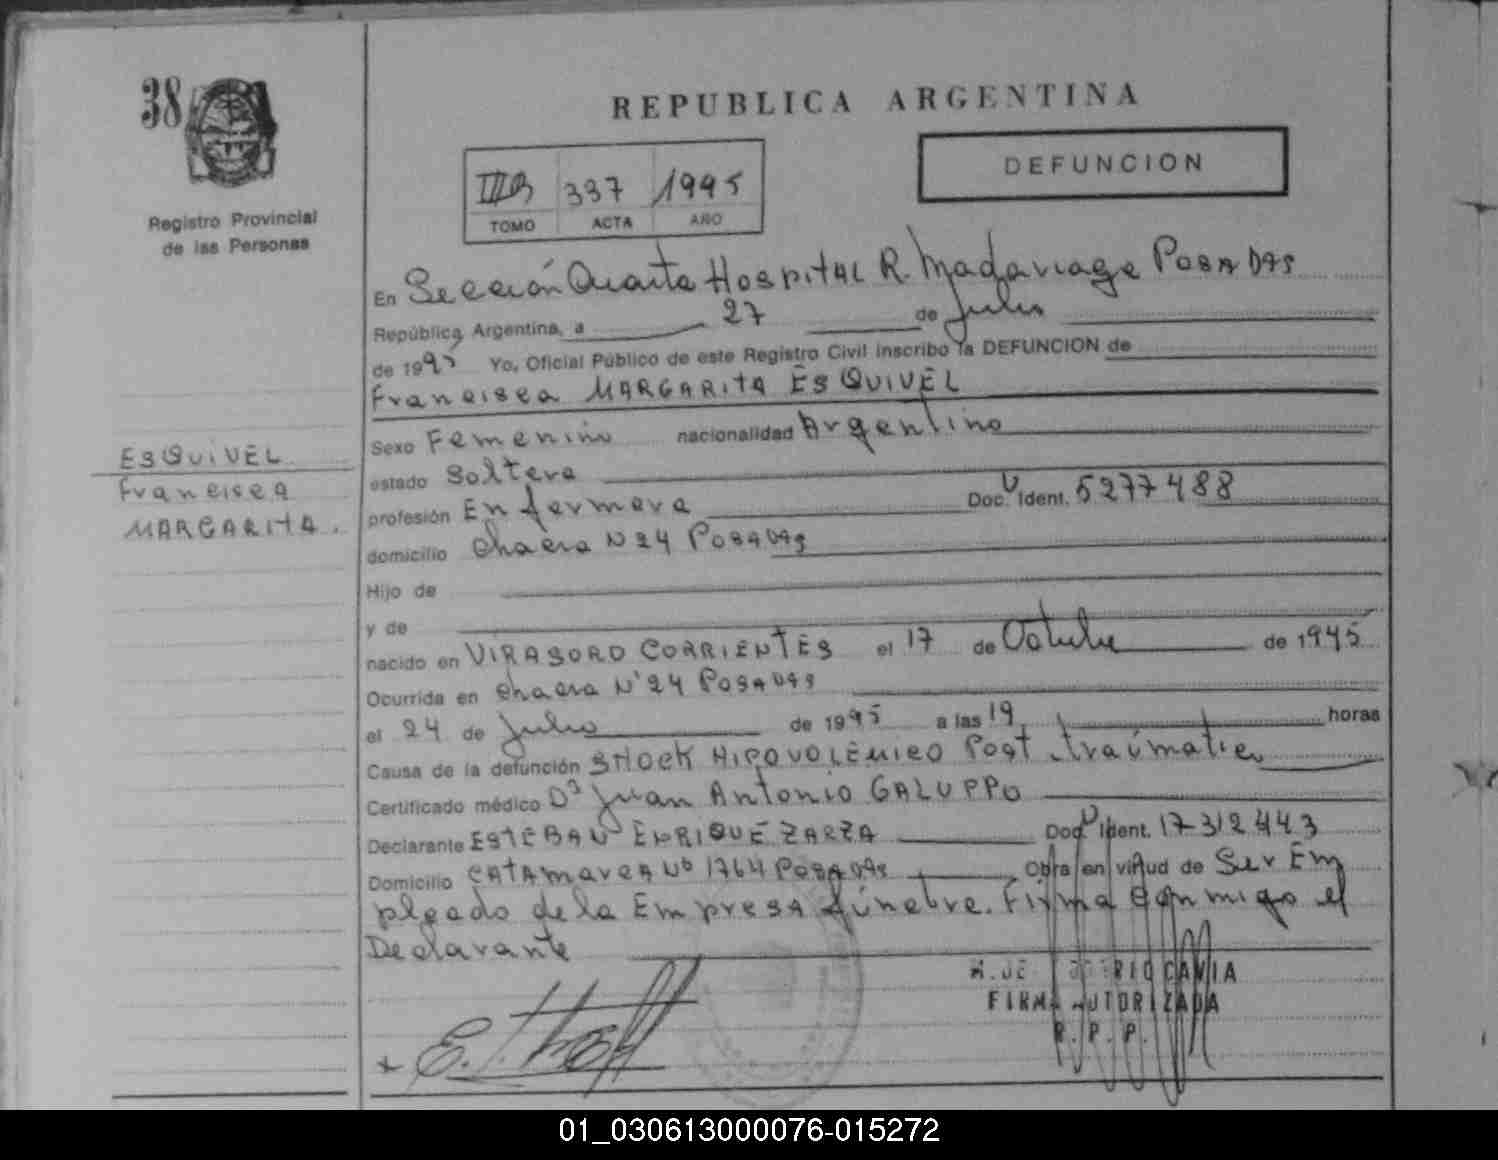 38
REPUBLICA ARGENTINA
DEFUNCION
337 1995
TOMO ACTA AÑO
Registro Provincial
de las Personas
En Sección Quarta Hospital R. Madariaga Posadas
República Argentina, a 27 de Julio
de 1995 Yo, Oficial Público de este Registro Civil inscribo la DEFUNCION de
Francisca MARGARITA ESQUIVEL
Sexo Femenino nacionalidad Argentino
ESQUIVEL
Francisca
MARGARITA.
estado Soltera
profesión Enfermera Doc. Ident. 5277488
domicilio chacra N 24 Posadas
Hijo de
y de
nacido en VIRASORO CORRIENTES el 17 de Octubre de 1945
Ocurrida en chacra N° 24 Posadas
el 24 de Julio de 1995 a las 19 horas
Causa de la defunción SHOCK HIPOVOLÉMICO Post traúmatico
Certificado médico Dº Juan Antonio GALUPPO
Declarante ESTEBAN ENRIQUE ZARZA Doc. Ident. 17312443
Domicilio CATAMARCA Nº 1764 Posadas Obra en virtud de Ser Em
pleado de la Empresa fúnebre. Firma conmigo el
Declarante
FIRMA AUTORIZADA
R. P. P.
01_030613000076-015272